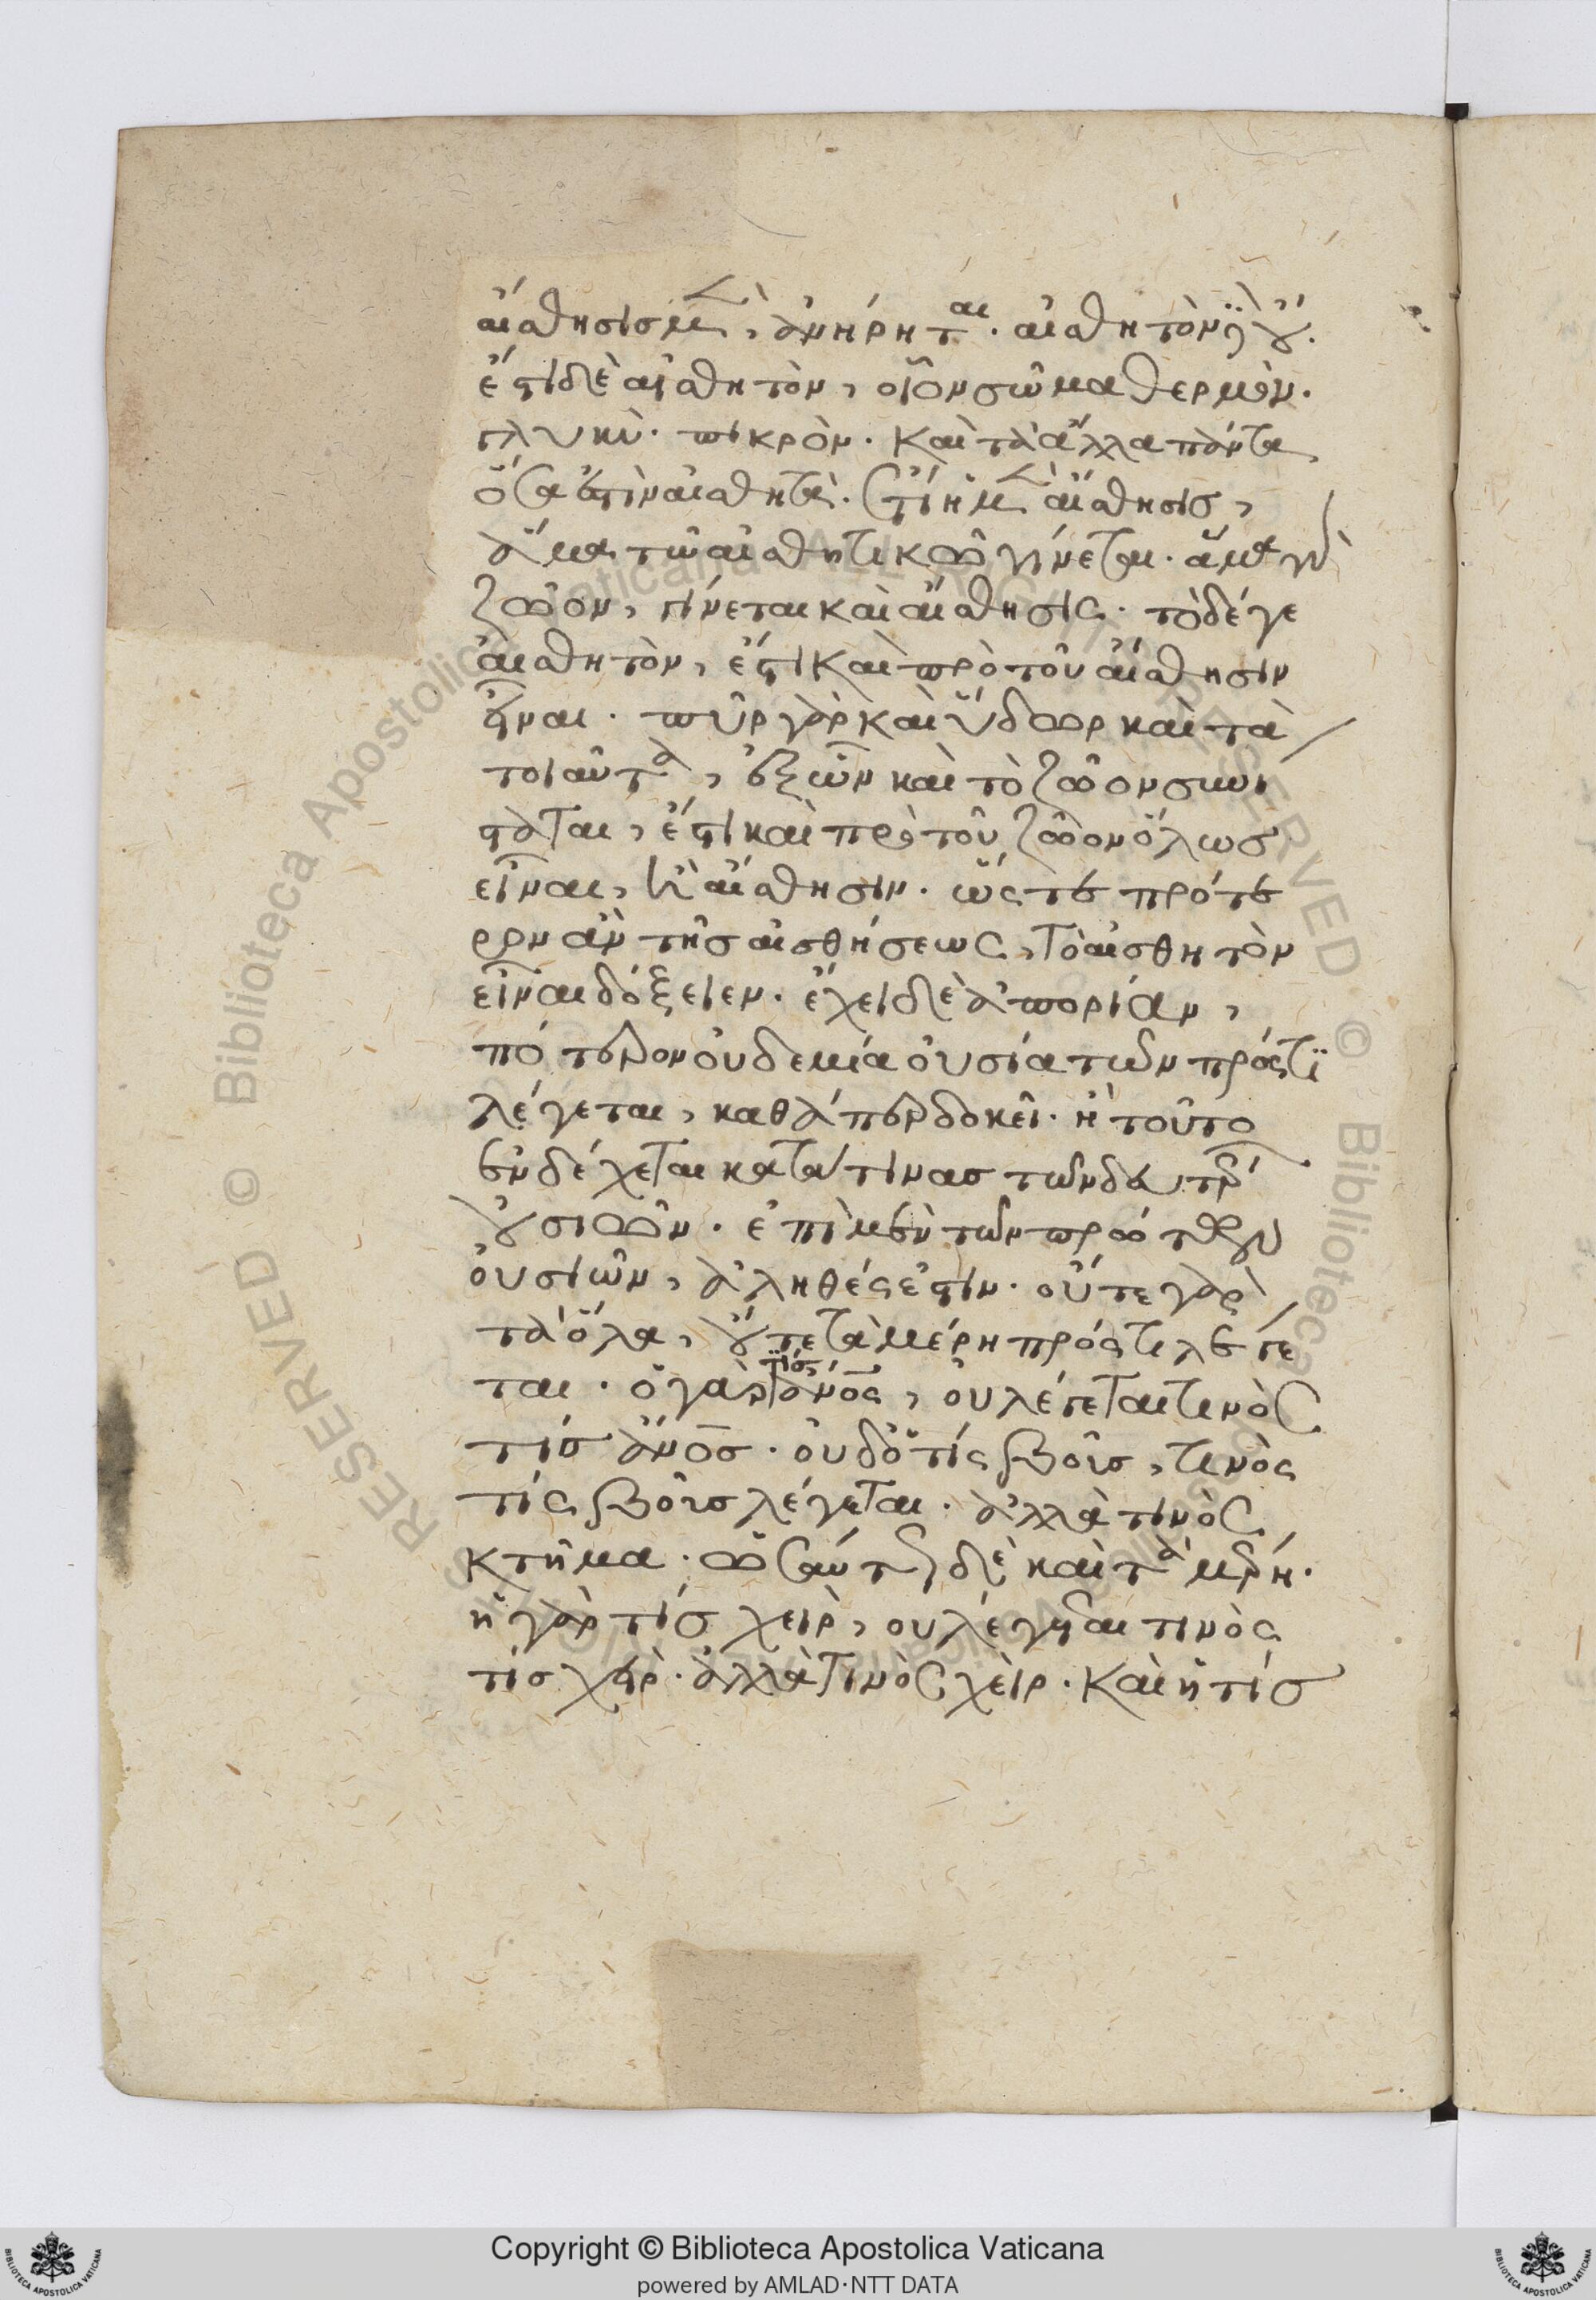 αἴσθησις μὲν, ἀνήρηται. αἰσθητὸν δὲ οὔ.
ἔστι δὲ αἰσθητὸν, οἷον σῶμα θερμὸν.
γλυκὺ. πικρὸν. καὶ τὰ ἄλλα πάντα
ὅσα ἐστὶν αἰσθητὰ. ἔτι ἡ μὲν αἴσθησις,
ἅμα τῶ αἰσθητικῶ γίνεται. ἅμα γὰρ
ζῶον, γίνεται καὶ αἴσθησις. τὸ δέ γε
αἰσθητὸν, ἔστι καὶ πρὸ τοῦ αἴσθησιν
εἶναι. πῦρ γὰρ καὶ ὕδωρ καὶ τὰ
τοιαῦτα, ἐξ ὧν καὶ τὸ ζῶον συνί
σταται, ἔστι καὶ πρὸ τοῦ ζῶον ὅλως
εἶναι, ἢ αἴσθησιν. ὥστε πρότε
ρον ἂν τῆς αἰσθήσεως, τὸ αἰσθητὸν
εἶναι δόξειεν. ἔχει δὲ ἀπορίαν,
πότερον οὐδεμία οὐσία τῶν πρός τϊ
λέγεται, καθάπερ δοκεῖ. ἢ τοῦτο
ἐνδέχεται κατά τινας τῶν δευτέρων
οὐσιῶν. ἐπὶ μὲν τῶν πρώτων
οὐσιῶν, ἀληθές ἐστιν. οὔτε γὰρ
τὰ ὅλα, οὔτε τὰ μέρη πρός τι λέγε
ται. ὁ γὰρ τὶς ἄνος, οὐ λέγεται τινὸς
τίς ἄνος. οὐδ' ὅ τίς βοῦς, τινὸς
τίς βοῦς λέγεται. ἀλλὰ τινὸς
κτῆμα. ὡσαύτως δὲ καὶ τὰ μέρη.
ἡ γὰρ τίς χεὶρ, οὐ λέγεται τινὸς
τίς χεὶρ. ἀλλὰ τινὸς χεὶρ. καὶ ἡ τίς
Copyright © Biblioteca Apostolica Vaticana
powered by AMLAD·NTT DATA